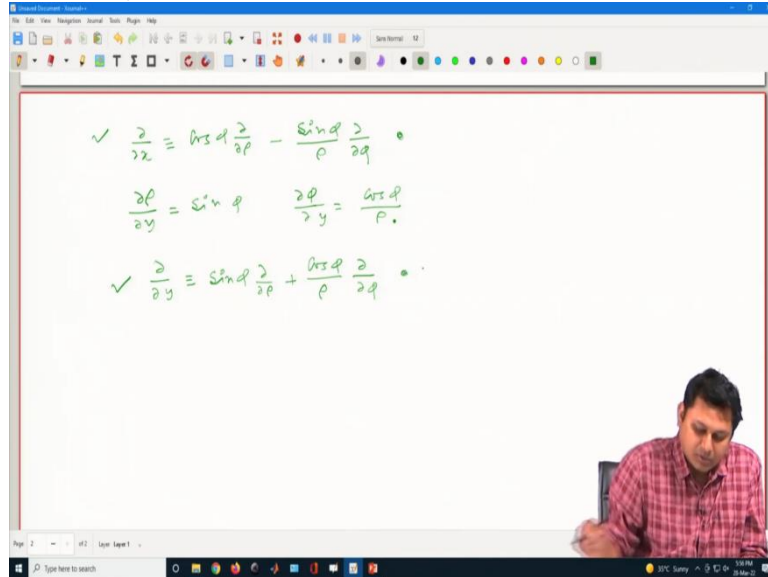 Unsaved Document - Xournal++
File Edit View Navigation Journal Tools Plugin Help
Sans Normal 12
✓ ∂/∂x ≡ cos φ ∂/∂ρ - sin φ/ρ ∂/∂φ
∂ρ/∂y = sin φ ∂φ/∂y = cos φ/ρ.
✓ ∂/∂y ≡ sin φ ∂/∂ρ + cos φ/ρ ∂/∂φ
Page 2 of 2 Layer Layer 1
Type here to search
35°C Sunny
5:56 PM